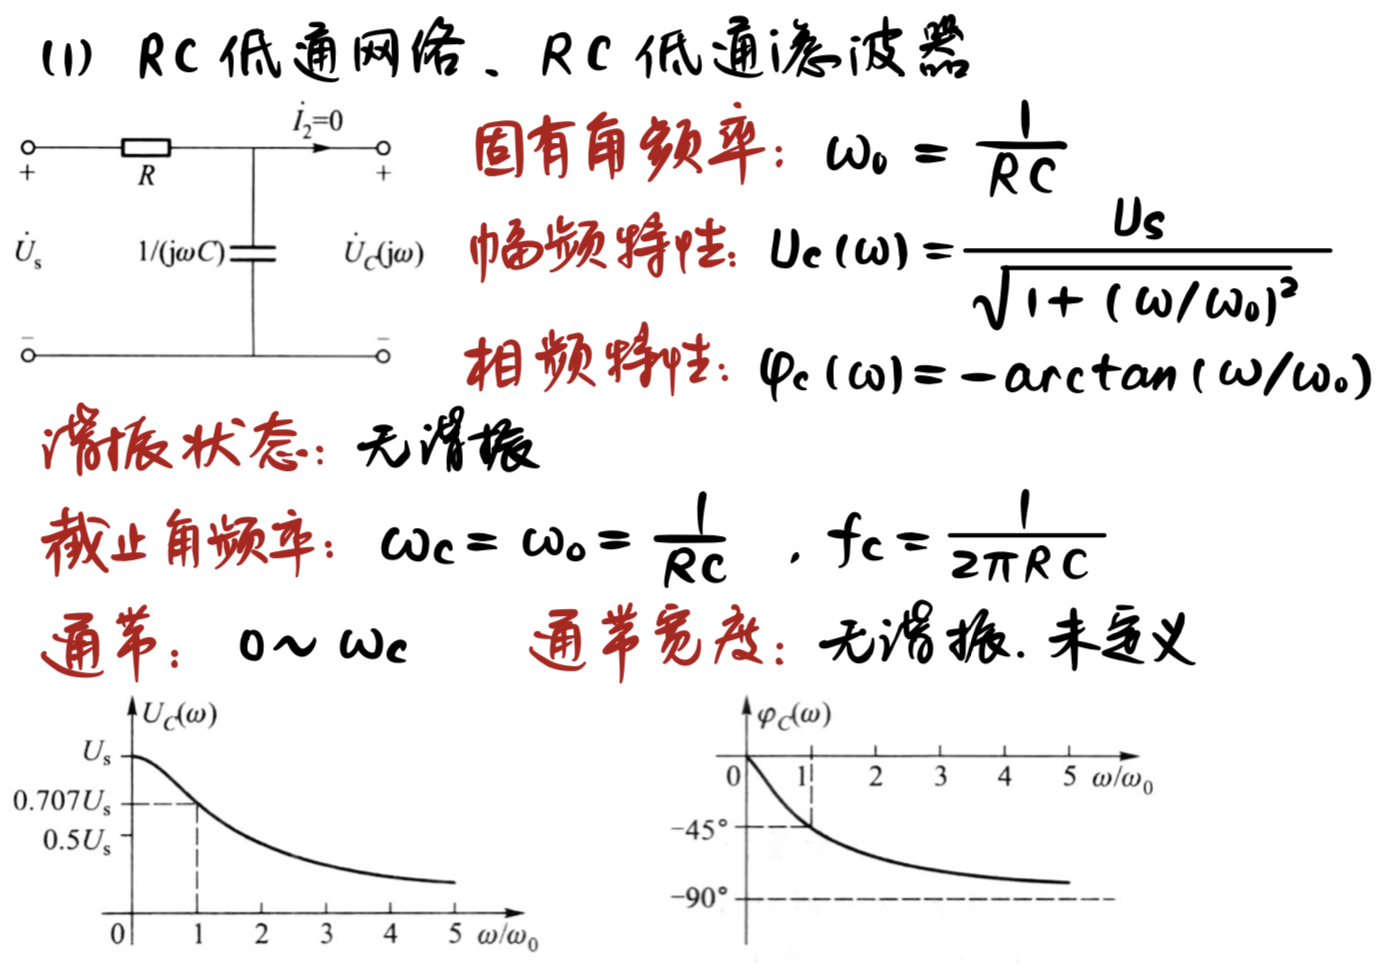 (1) RC低通网络、RC低通滤波器
İ₂=0
+ R +
U̇ₛ 1/(jωC) U̇_C(jω)
− −
固有角频率: ω₀ = 1/RC
幅频特性: Uc(ω) = Us/√(1+(ω/ω₀)²)
相频特性: φc(ω) = -arctan(ω/ω₀)
谐振状态: 无谐振
截止角频率: ωc = ω₀ = 1/RC , fc = 1/2πRC
通带: 0~ωc 通带宽度: 无谐振.未定义
U_C(ω)
Uₛ
0.707Uₛ
0.5Uₛ
0 1 2 3 4 5 ω/ω₀
φ_C(ω)
0 1 2 3 4 5 ω/ω₀
−45°
−90°